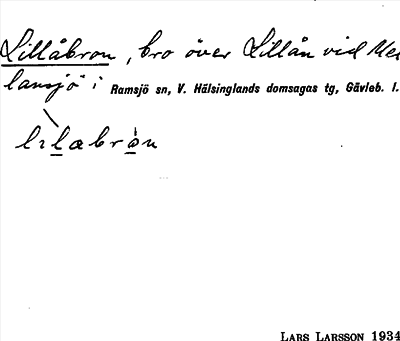 Lillåbron, bro över Lillån vid Mel
lansjö i Ramsjö sn, V. Hälsinglands domsagas tg, Gävleb. l.
LARS LARSSON 1934